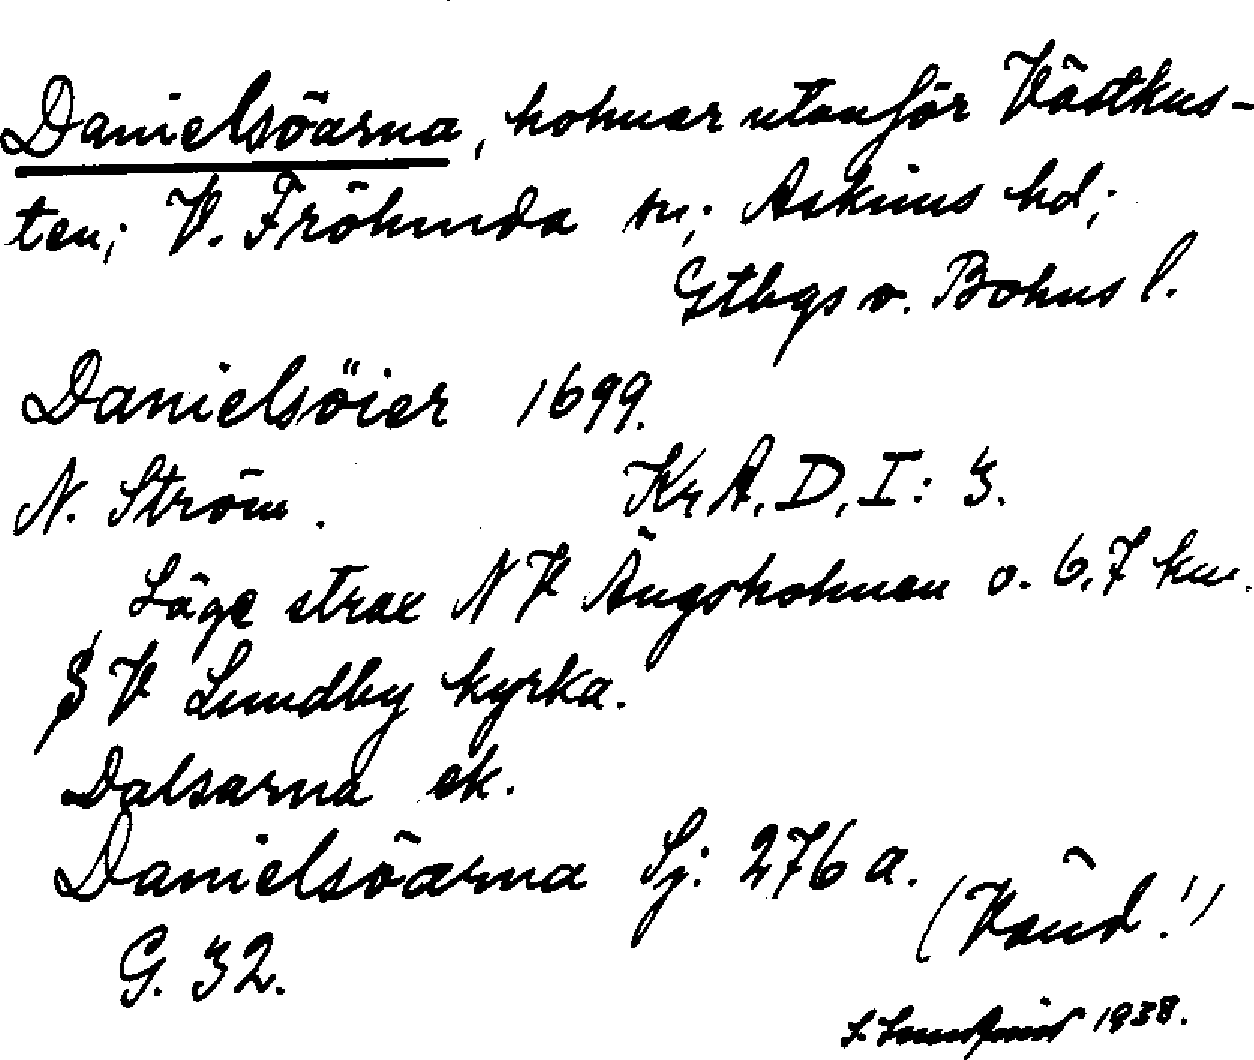 Danielsöarna, holmar utanför Västkus-
ten; V. Frölunda sn; Askims hd;
Gtbgs o. Bohus l.
Danielsöier 1699.
N. Ström. KrA. D, I: 3.
Läge strax NV Ängsholmen o. 6,7 km.
SV Lundby kyrka.
Dalsarna ek.
Danielsöarna Sj: 276 a.
G. 32. (Vänd!)
1938.